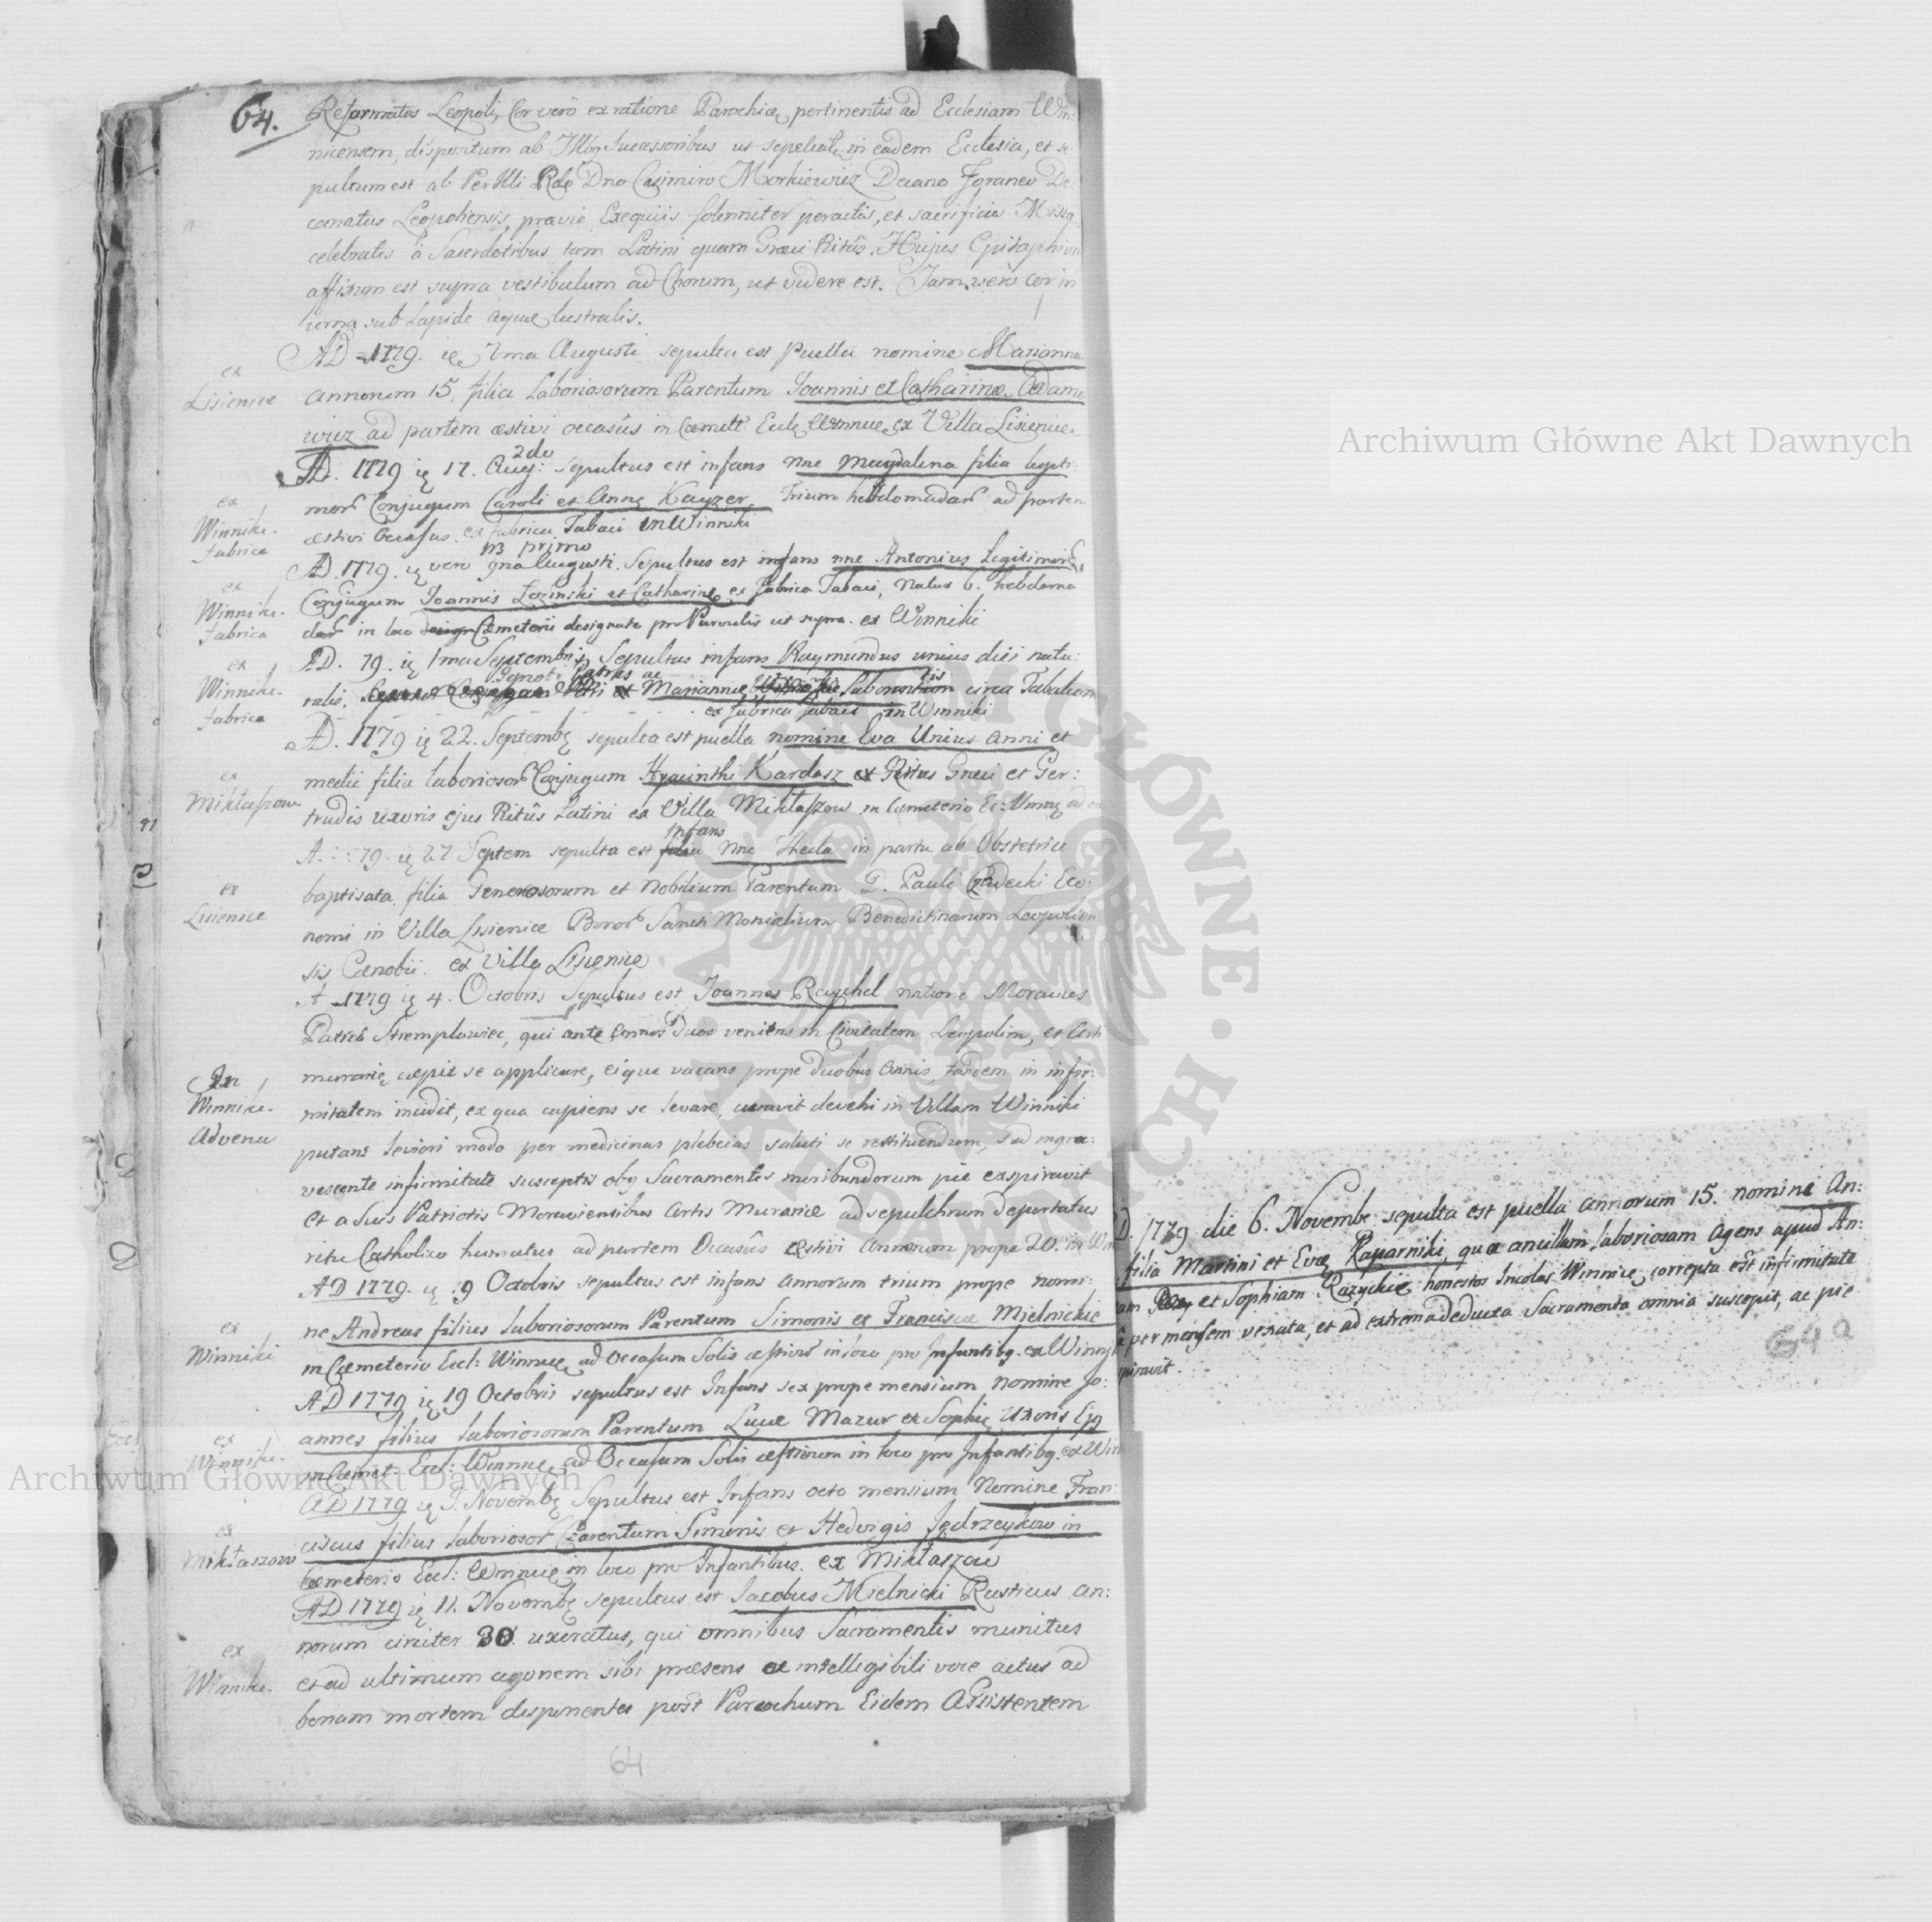 64.
Reformatos Leopoli, Cor verò ex ratione Parochiæ pertinentis ad Ecclesiam Win:
nicensem, dispositum ab Successoribus ut sepeliatur in eadem Ecclesia, et se
pultum est ab Per Illi Rdo Dno Casimiro Morkiewicz Decano Foraneo De:
canatus Leopoliensis, prævie Exequiis solenniter peractis, et sacrificiis Missa
celebratis à Sacerdotibus tam Latini quam Græci Ritûs. Hujus Epitaphium
affixum est supra vestibulum ad Chorum, ut videre est. Jam verò Cor in
urna sub Lapide aquæ lustralis.
AD 1779. ię 7ma Augusti sepulta est Puella nomine Marianna
ex
Lisienice
annorum 15. filia Laboriosorum Parentum Joannis et Catharinæ Adamo
wicz ad partem æstivi occasûs in Cœmett Eccle Winnice ex Villa Lisienice
2do
AD. 1779 ię 17. Aug: Sepultus est infans nne Magdalena filia legiti:
ex
Winniki.
fabrica
mor Conjugum Caroli et Annę Kayzer trium hebdomadar ad partem
æstivi Occasus. ex fabrica Tabaci in Winniki
primo
AD. 1779. ię vero Augusti. Sepultus est infans nne Antonius Legitimor
ex
Winniki.
fabrica
Conjugum Joannis Lozinski et Catharinę ex fabrica Tabaci, natus 6. hebdoma
dar in loco Cœmeterii designato pro Parvulis ut supra. ex Winniki
AD. 79. ię 1ma Septembris Sepultus infans Raymundus unius diei natu:
ex
Winniki.
fabrica
Ignoti Patris ac
ralis. Mariannę Laborantis circa Tabacum
ex fabrica Tabaci in Winniki
AD. 1779 ię 22. Septembę sepulta est puella nomine Eva Unius anni et
ex
Mikłaszow
medii filia laboriosor Conjugum Hyacinthi Kardasz ex Ritus Græci et Ger:
trudis uxoris ejus Ritûs Latini ex Villa Mikłaszow in Cœmeterio Ec: Winnę
infans
A. 79. ię 27 Septem sepulta est nne Thecla in partu ab Obstetrice
ex
Lisienice
baptisata filia Generosorum et Nobilium Parentum D. Pauli Czadecki Eco:
nomi in Villa Lisienice Bonor Sancti Monialium Benedictinarum Leopolien
sis Cœnobii. ex Villa Lisienice
A 1779 ię 4. Octobris Sepultus est Joannes Rayhel natione Moravus
Patria Stremplowiec, qui ante annos duos veniens in Civitatem Leopolim, et Arti
In
Winniki.
Advena
murariæ cœpit se applicare, eique vacans prope duobus annis tandem in infir:
mitatem incidit, ex qua cupiens se levare, curavit devehi in Villam Winniki
putans leviori modo per medicinas plebeias saluti se restituendum, sed ingra:
vescente infirmitate susceptis obq Sacramentis moribundorum pie exspiravit
et a suis Patriotis Moraviensibus Artis Murariæ ad sepulchrum deportatus
ritu Catholico humatus ad partem Occasûs æstivi annorum prope 20. in Win
AD 1779. ię 9 Octobris sepultus est infans annorum trium prope nomi:
ex
Winniki
ne Andreas filius laboriosorum Parentum Simonis et Franciscæ Mielnickie
in Cœmeterio Eccl: Winnicę ad Occasum Solis æstivum in loco pro Infantibq. ex Winnik
AD 1779 ię 19 Octobris sepultus est Infans sex prope mensium nomine Jo:
ex
Winniki.
annes filius laboriosorum Parentum Lucæ Mazur et Sophię Uxoris Ejq
in Cœmet: Eccl: Winnicę ad Occasum Solis æstivum in loco pro Infantibq. ex Win
AD 1779 ię 3. Novembę Sepultus est Infans octo mensium Nomine Fran:
ex
Mikłaszow
ciscus filius laboriosor Parentum Simonis et Hedvigis Jędrzeykow in
Cœmeterio Eccl: Winnicę in loco pro Infantibus. ex Mikłaszow
AD 1779 ię 11. Novembę sepultus est Jacobus Mielnicki Rusticus an:
ex
Winniki.
norum circiter 30 uxoratus, qui omnibus Sacramentis munitus
et ad ultimum agonem sibi præsens et intelligibili voce actus ad
bonam mortem disponentes post Parochum Eidem Assistentem
64
D. 1779 die 6. Novembr: sepulta est puella annorum 15. nomine An:
filia Martini et Evæ Kaparniki, quæ ancillam laboriosam agens apud An:
am et Sophiam Razyckie honestos Incolas Winnicę, correpta est infirmitate
per mensem vexata, et ad extrema deducta Sacramenta omnia suscepit, ac pie
piravit.
64a
Archiwum Główne Akt Dawnych
Archiwum Główne Akt Dawnych
ARCHIWUM GŁÓWNE AKT DAWNYCH